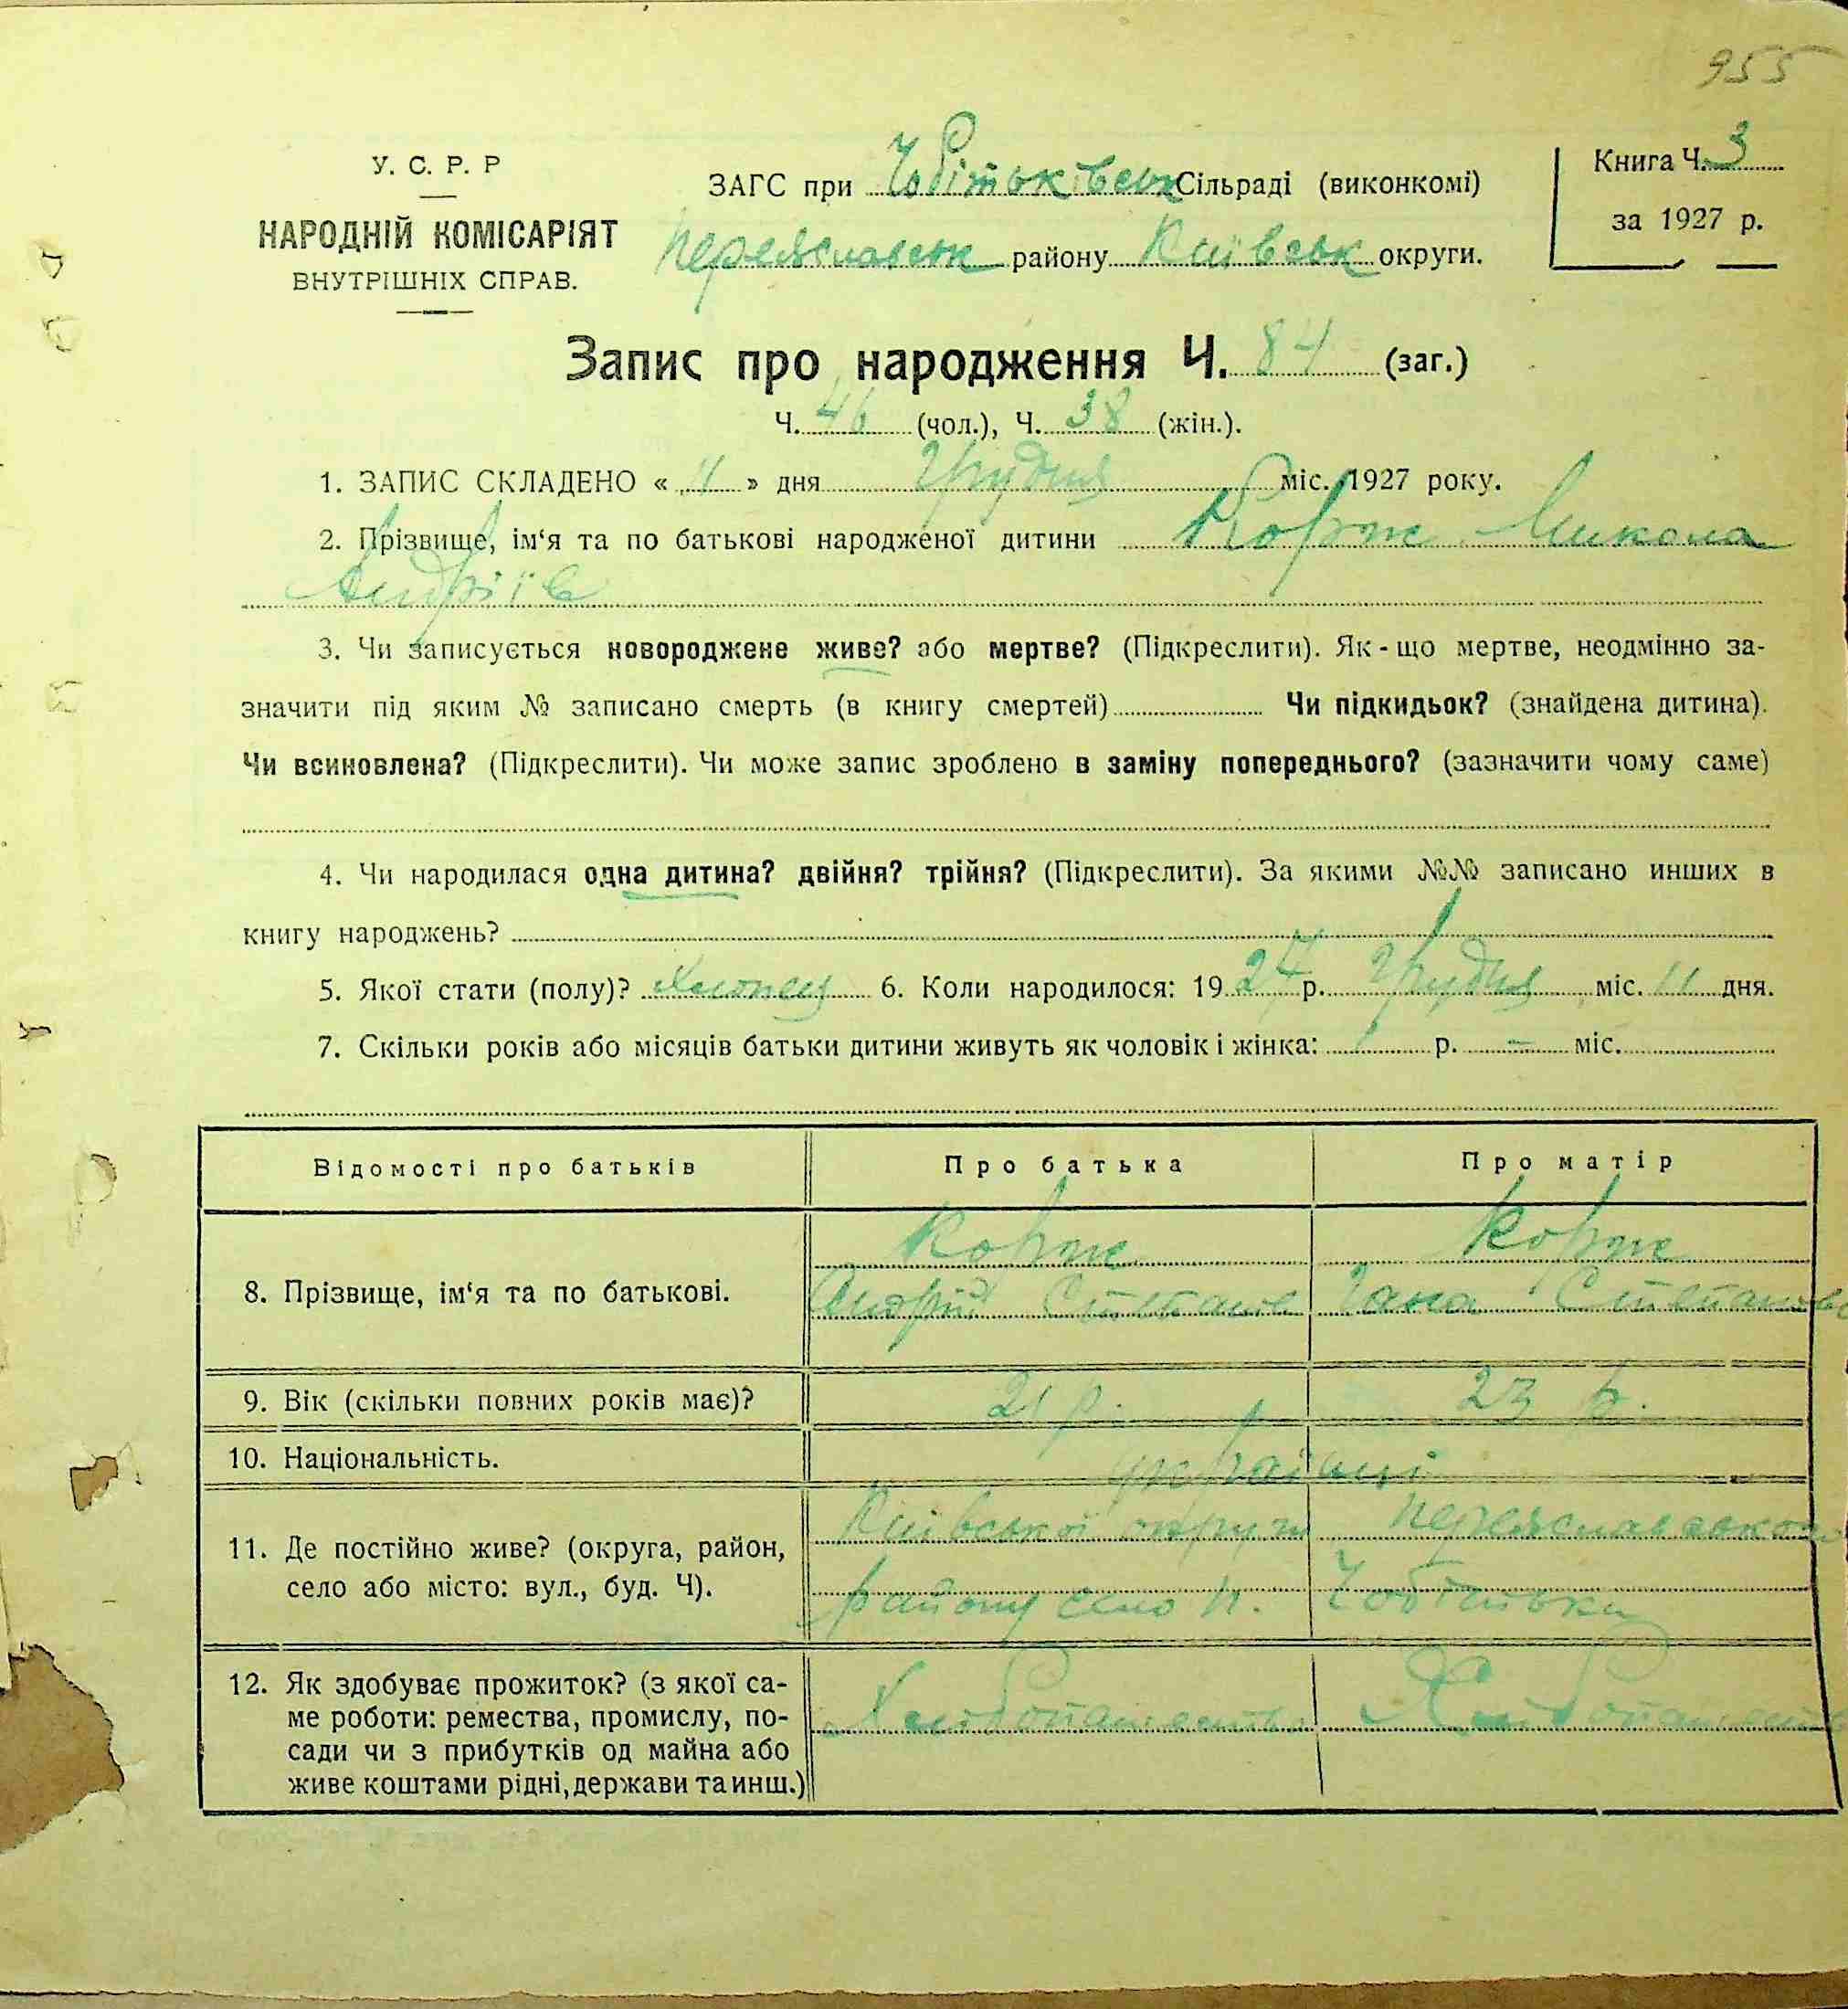 955
У. С. Р. Р
НАРОДНІЙ КОМІСАРІЯТ
ВНУТРІШНІХ СПРАВ.
ЗАГС при Чобітьківськ Сільраді (виконкомі)
Переяславськ району Київськ округи.
Книга Ч. 3
за 1927 р.
Запис про народження Ч. 84 (заг.)
Ч. 46 (чол.), Ч. 38 (жін.).
1. ЗАПИС СКЛАДЕНО « 11 » дня Грудня міс. 1927 року.
2. Прізвище, ім‘я та по батькові народженої дитини Корж Микола
Андріїв
3. Чи записується новороджене живе? або мертве? (Підкреслити). Як-що мертве, неодмінно за-
значити під яким № записано смерть (в книгу смертей) Чи підкидьок? (знайдена дитина).
Чи всиновлена? (Підкреслити). Чи може запис зроблено в заміну попереднього? (зазначити чому саме)
4. Чи народилася одна дитина? двійня? трійня? (Підкреслити). За якими №№ записано инших в
книгу народжень?
5. Якої стати (полу)? Хлопець 6. Коли народилося: 19 27 р. Грудня міс. 11 дня.
7. Скільки років або місяців батьки дитини живуть як чоловік і жінка: 1 р. – міс.
Відомості про батьків Про батька Про матір
Корж Корж
8. Прізвище, ім‘я та по батькові. Андрій Степанов Гана Степанов
9. Вік (скільки повних років має)? 21 р. 23 р.
10. Національність. українці
Київської округи Переяславського
11. Де постійно живе? (округа, район,
село або місто: вул., буд. Ч). району село П. Чобітьки
12. Як здобуває прожиток? (з якої са-
ме роботи: ремества, промислу, по- Хліборобство Хліборобство
сади чи з прибутків од майна або
живе коштами рідні, держави та инш.)